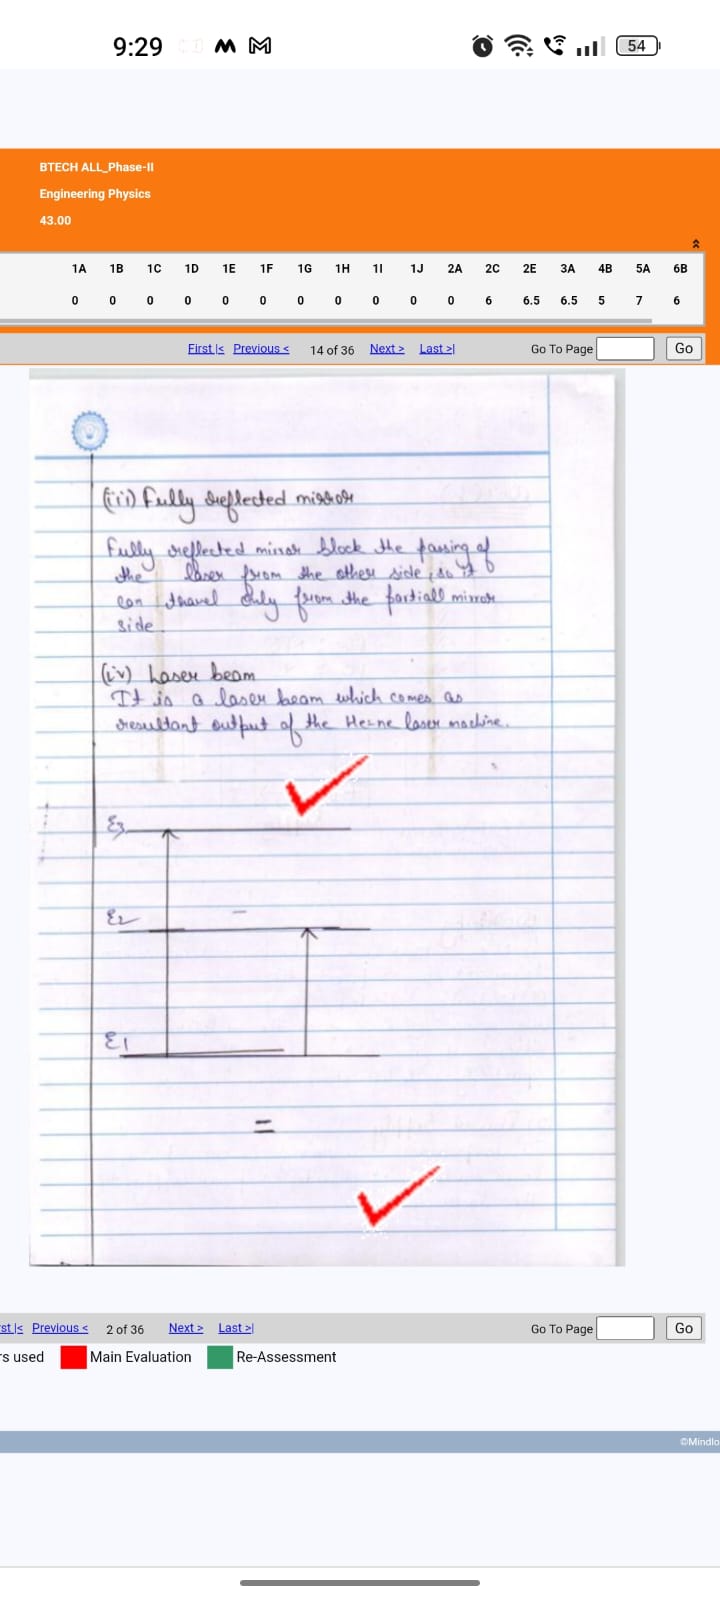 9:29
54
BTECH ALL_Phase-II
Engineering Physics
43.00
1A 1B 1C 1D 1E 1F 1G 1H 1I 1J 2A 2C 2E 3A 4B 5A 6B
0 0 0 0 0 0 0 0 0 0 0 6 6.5 6.5 5 7 6
First |< Previous < 14 of 36 Next > Last >| Go To Page Go
(iii) Fully reflected mirror
Fully reflected mirror block the passing of
the laser from the other side, so it
can travel only from the partiall mirror
side
(iv) Laser beam
It is a laser beam which comes as
resultant output of the Hezne laser machine.
E3
E2
E1
rst |< Previous < 2 of 36 Next > Last >| Go To Page Go
rs used Main Evaluation Re-Assessment
©Mindlo